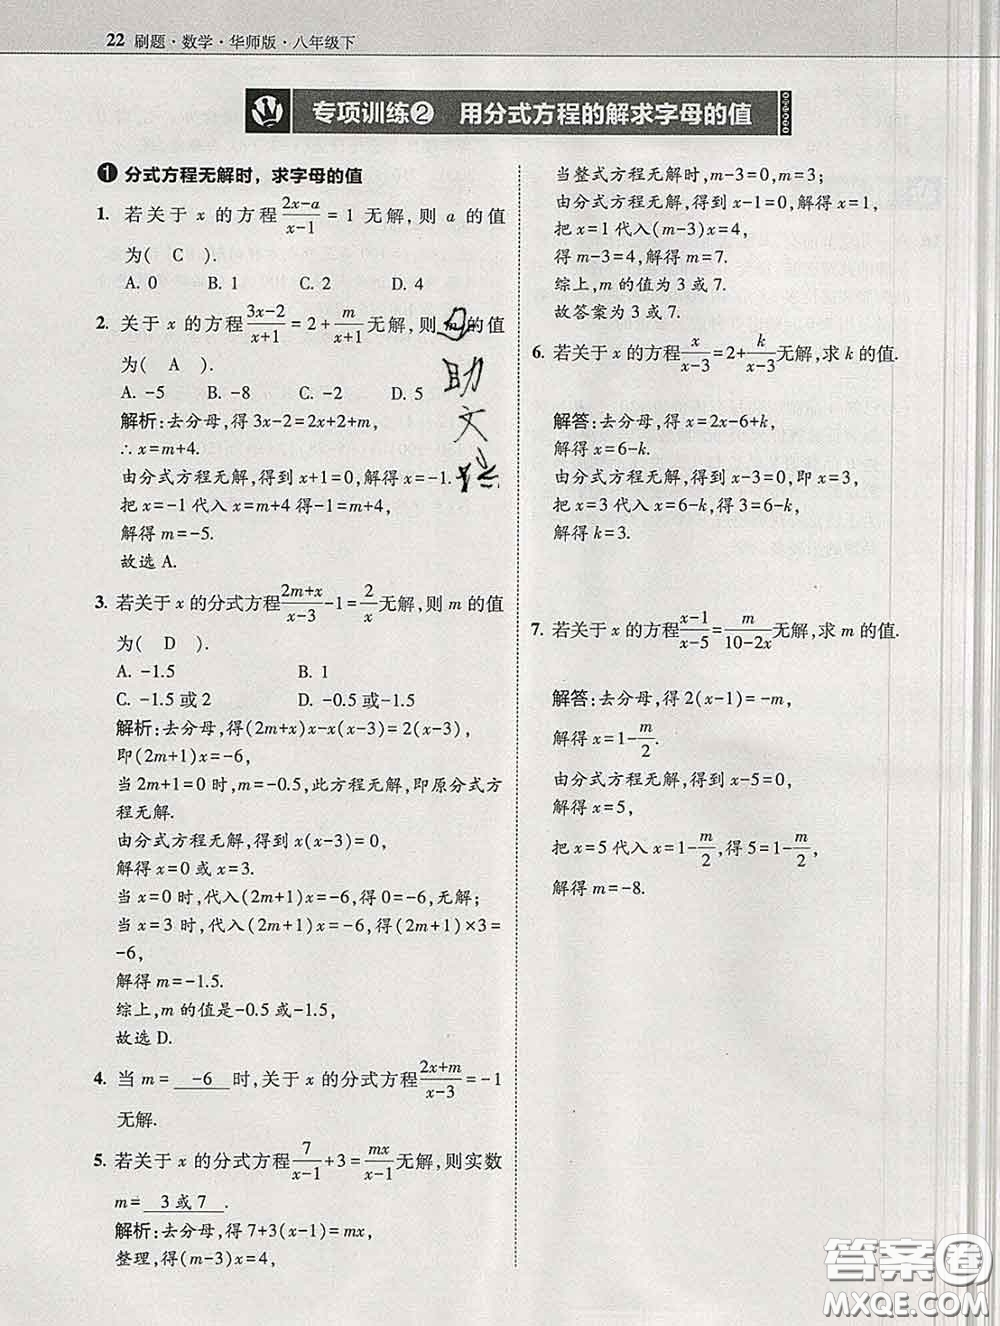 22 刷题·数学·华师版·八年级下
专项训练❷ 用分式方程的解求字母的值
❶ 分式方程无解时，求字母的值
1. 若关于 x 的方程(2x-a)/(x-1) = 1 无解,则 a 的值
为( C ).
A. 0 B. 1 C. 2 D. 4
2. 关于 x 的方程(3x-2)/(x+1)=2+m/(x+1)无解,则 m 的值
为( A ).
A. -5 B. -8 C. -2 D. 5
解析:去分母,得 3x-2=2x+2+m,
∴x=m+4.
由分式方程无解,得到 x+1=0,解得 x=-1.
把 x=-1 代入 x=m+4 得-1=m+4,
解得 m=-5.
故选 A.
3. 若关于 x 的分式方程(2m+x)/(x-3)-1=2/x无解,则 m 的值
为( D ).
A. -1.5 B. 1
C. -1.5 或 2 D. -0.5 或-1.5
解析:去分母,得(2m+x)x-x(x-3)=2(x-3),
即(2m+1)x=-6,
当 2m+1=0 时,m=-0.5,此方程无解,即原分式方
程无解.
由分式方程无解,得到 x(x-3)=0,
解得 x=0 或 x=3.
当 x=0 时,代入(2m+1)x=-6,得 0=-6,无解;
当 x=3 时,代入(2m+1)x=-6,得(2m+1)×3=
-6,
解得 m=-1.5.
综上,m 的值是-0.5 或-1.5,
故选 D.
4. 当 m= -6 时,关于 x 的分式方程(2x+m)/(x-3)=-1
无解.
5. 若关于 x 的分式方程7/(x-1)+3=mx/(x-1)无解,则实数
m= 3 或 7 .
解析:去分母,得 7+3(x-1)=mx,
整理,得(m-3)x=4,
当整式方程无解时,m-3=0,m=3;
由分式方程无解,得到 x-1=0,解得 x=1,
把 x=1 代入(m-3)x=4,
得 m-3=4,解得 m=7.
综上,m 的值为 3 或 7.
故答案为 3 或 7.
6. 若关于 x 的方程x/(x-3)=2+k/(x-3)无解,求 k 的值.
解答:去分母,得 x=2x-6+k,
解得 x=6-k.
由分式方程无解,得到 x-3=0,即 x=3,
把 x=3 代入 x=6-k,得 3=6-k,
解得 k=3.
7. 若关于 x 的方程(x-1)/(x-5)=m/(10-2x)无解,求 m 的值.
解答:去分母,得 2(x-1)=-m,
解得 x=1-m/2.
由分式方程无解,得到 x-5=0,
解得 x=5,
把 x=5 代入 x=1-m/2,得 5=1-m/2,
解得 m=-8.
助
文
答案卷
MXQE.COM